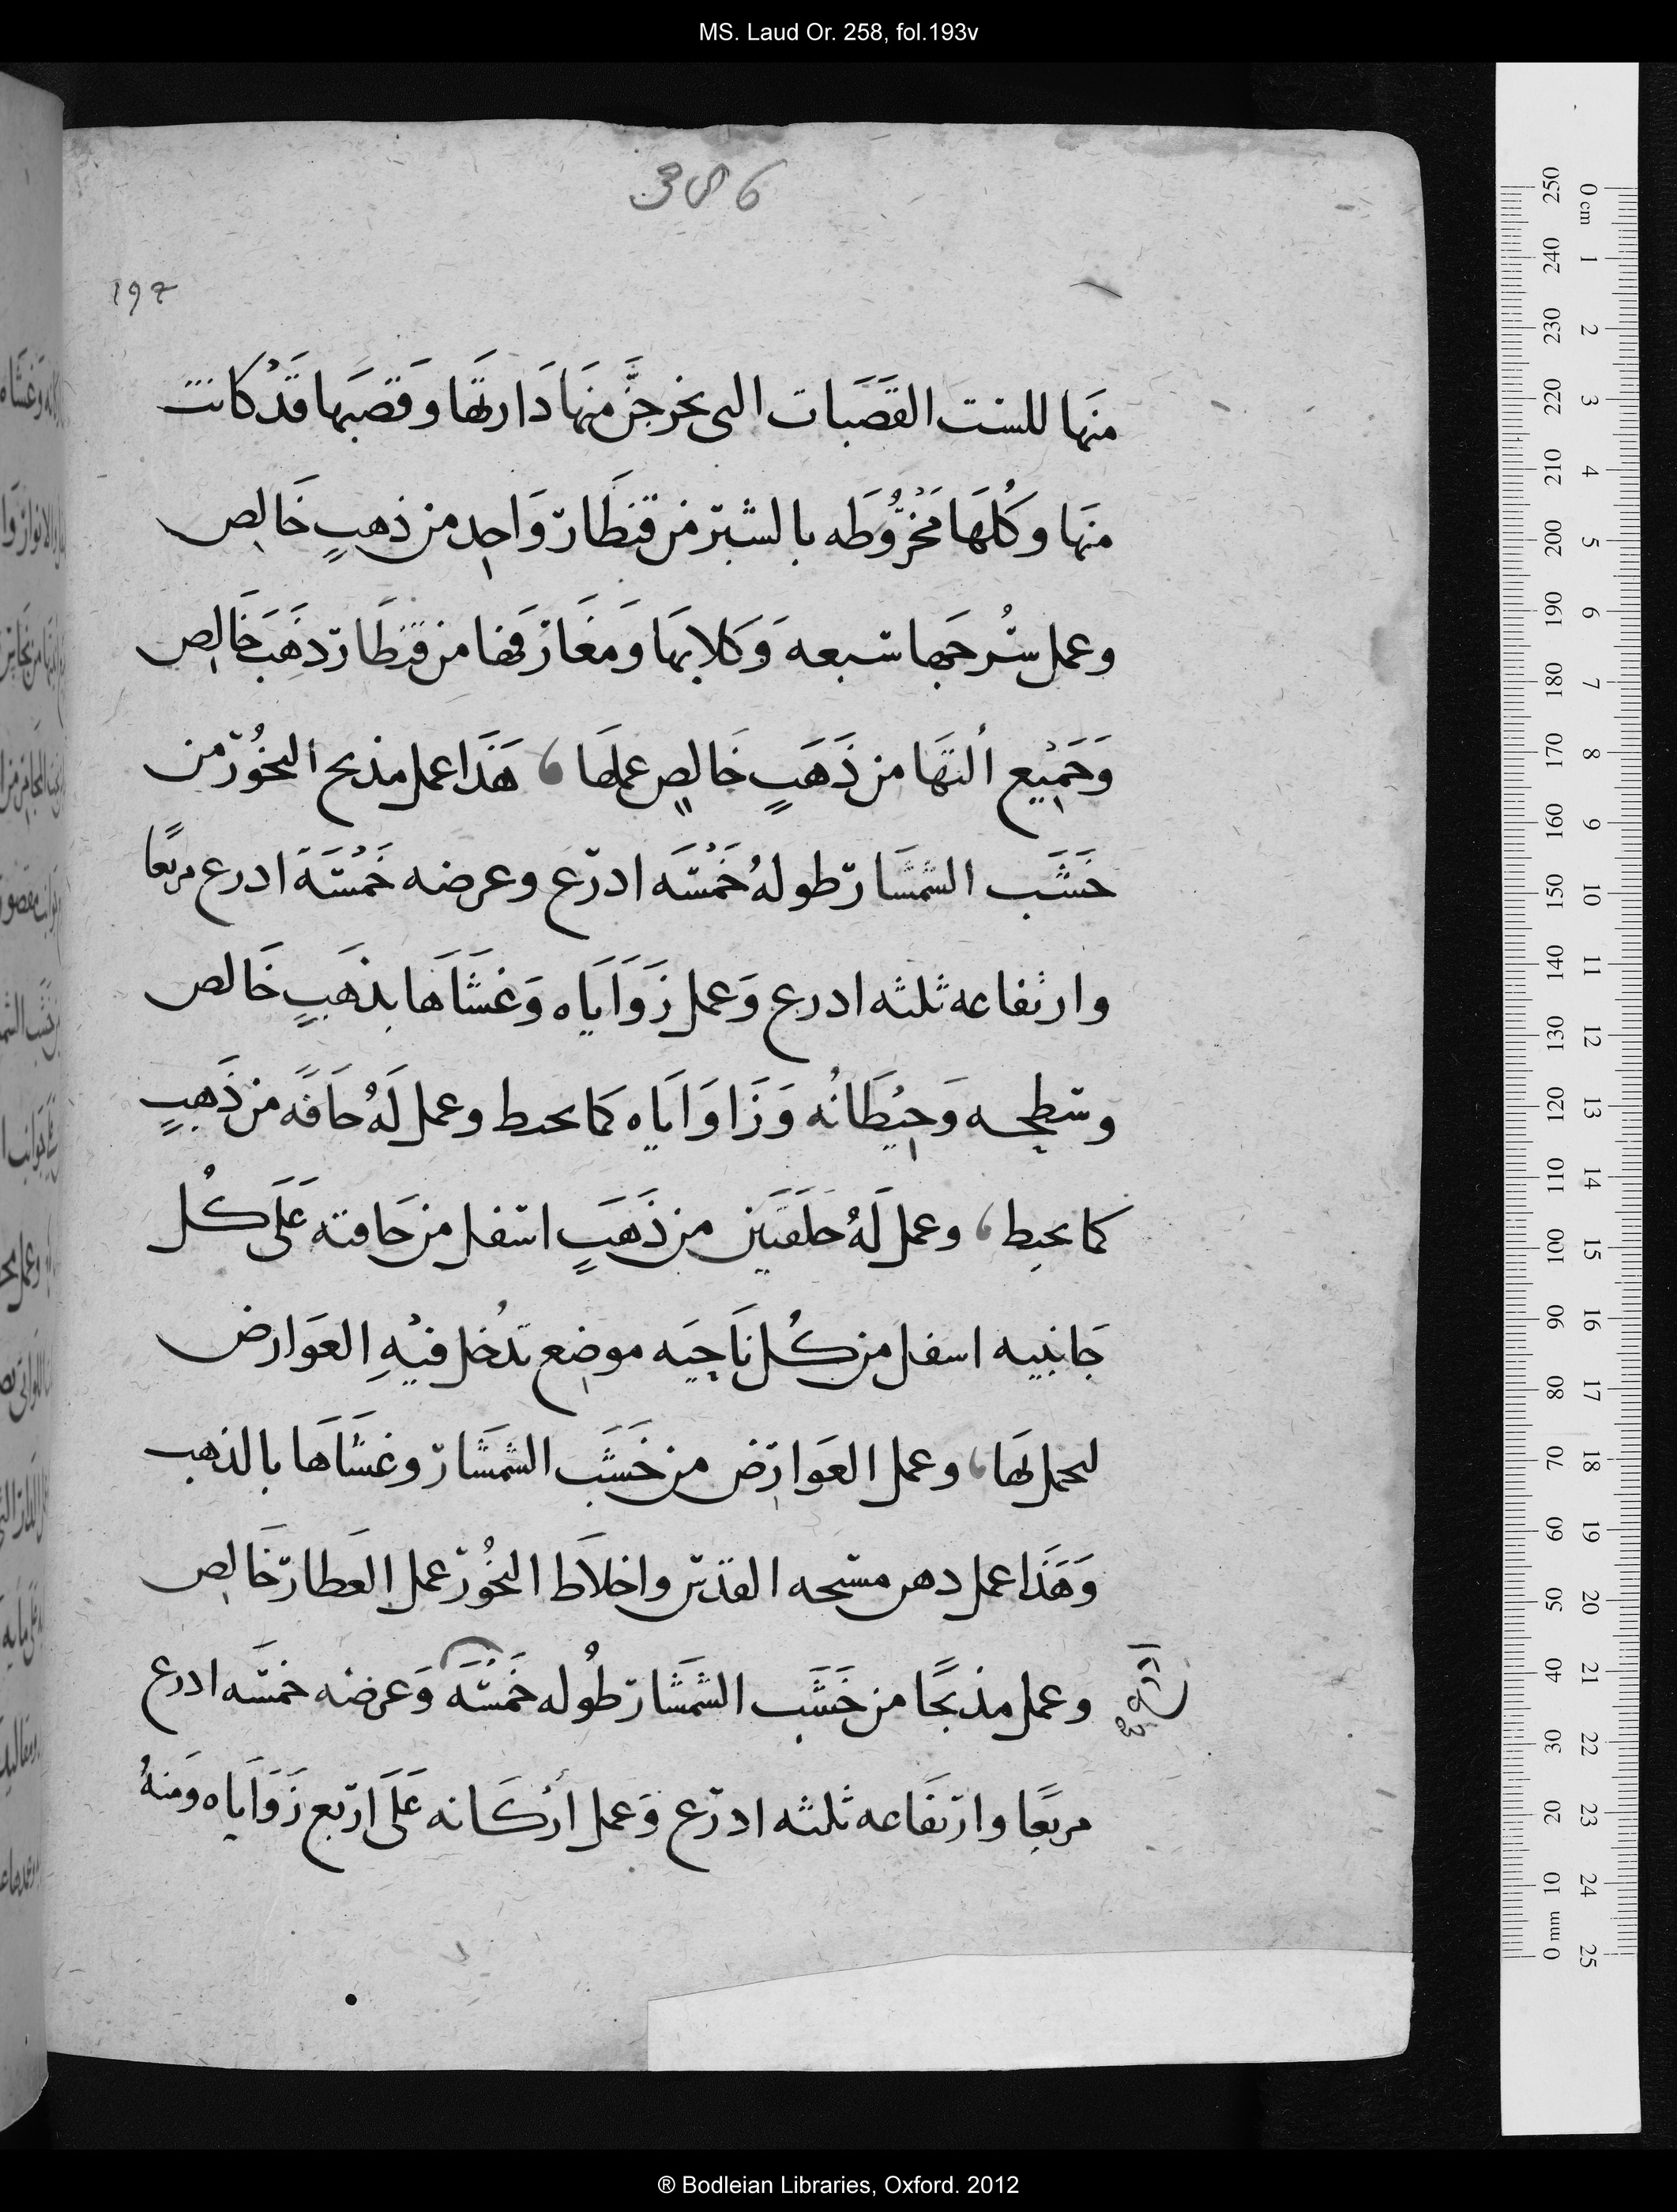 MS. Laud Or. 258, fol.193v
386
197
منَها للست القَصَبَات التى يخرجنَّ منهَا دَارتهَا وقَصَبها قدْ كانت
منها وكُلهَا مَخْرُوطَه بالشبر من قنطَار وَاحِد من ذهبٍ خَالِص
وعمل سُرجَها سبعه وَكلابهَا ومغَارفها من قنطَار ذهَب خَالِص
وَجَمِيْع ألتهَا من ذَهَبٍ خَالِصٍ عملهَا ، هَذَا عمل مذبح البخُوْر من
خَشَب الشمشَار طولهُ خَمْسَه ادرع وعرضه خَمْسَة ادرع مربعًا
وارتفاعه ثلثه ادرع وَعمل زَوَايَاه وَغشَاهَا بذهَبٍ خَالص
وسطحِه وَحِيْطَانُه وَزَاوَايَاه كما يحيط وعمل لَهُ حَافَةً من ذَهبٍ
كما يحيِط ، وعمل لَهُ حلقتَين من ذَهَبٍ اسفل من حَافته عَلَى كُل
جَانبيه اسفل من كُل نَاحِيَه موضِع تدْخُل فيْهِ العَوَارض
لحملهَا ، وعمل العَوارِض من خَشَب الشمشَار وغشَاهَا بالذهب
وَهَذَا عمل دهن مسحه القدس واخلاَط البخُوْر عمل العَطار خَالِص
وعمل مذبحًا من خَشَب الشمشَار طُوله خَمْسَه وَعرضه خمسَه ادرع
مربعًا وارتفَاعه ثلثه ادرع وَعمل ارْكَانه عَلَى اربع زَوَايَاه وَمنهُ
® Bodleian Libraries, Oxford. 2012